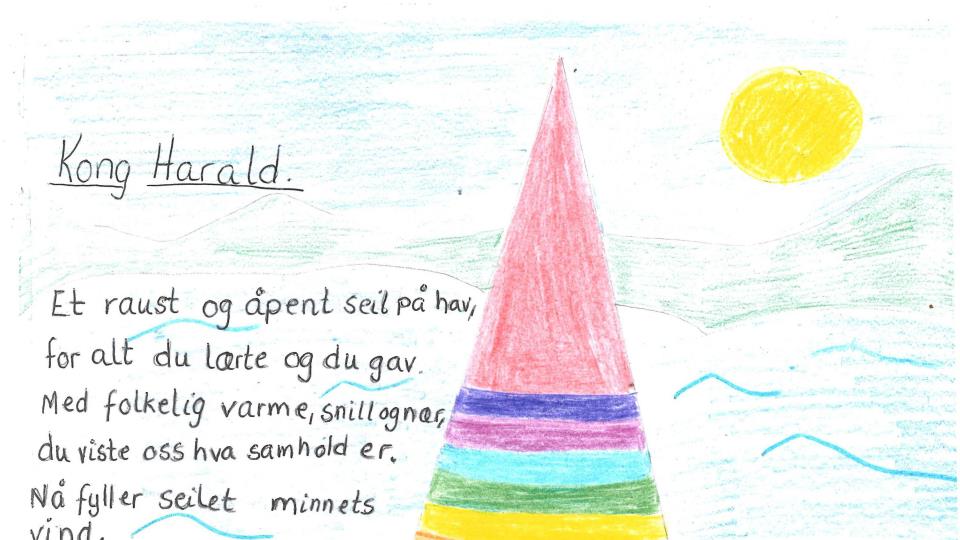 Kong Harald.
Et raust og åpent seil på hav,
for alt du lærte og du gav.
Med folkelig varme, snill og nær,
du viste oss hva samhold er.
Nå fyller seilet minnets
vind.